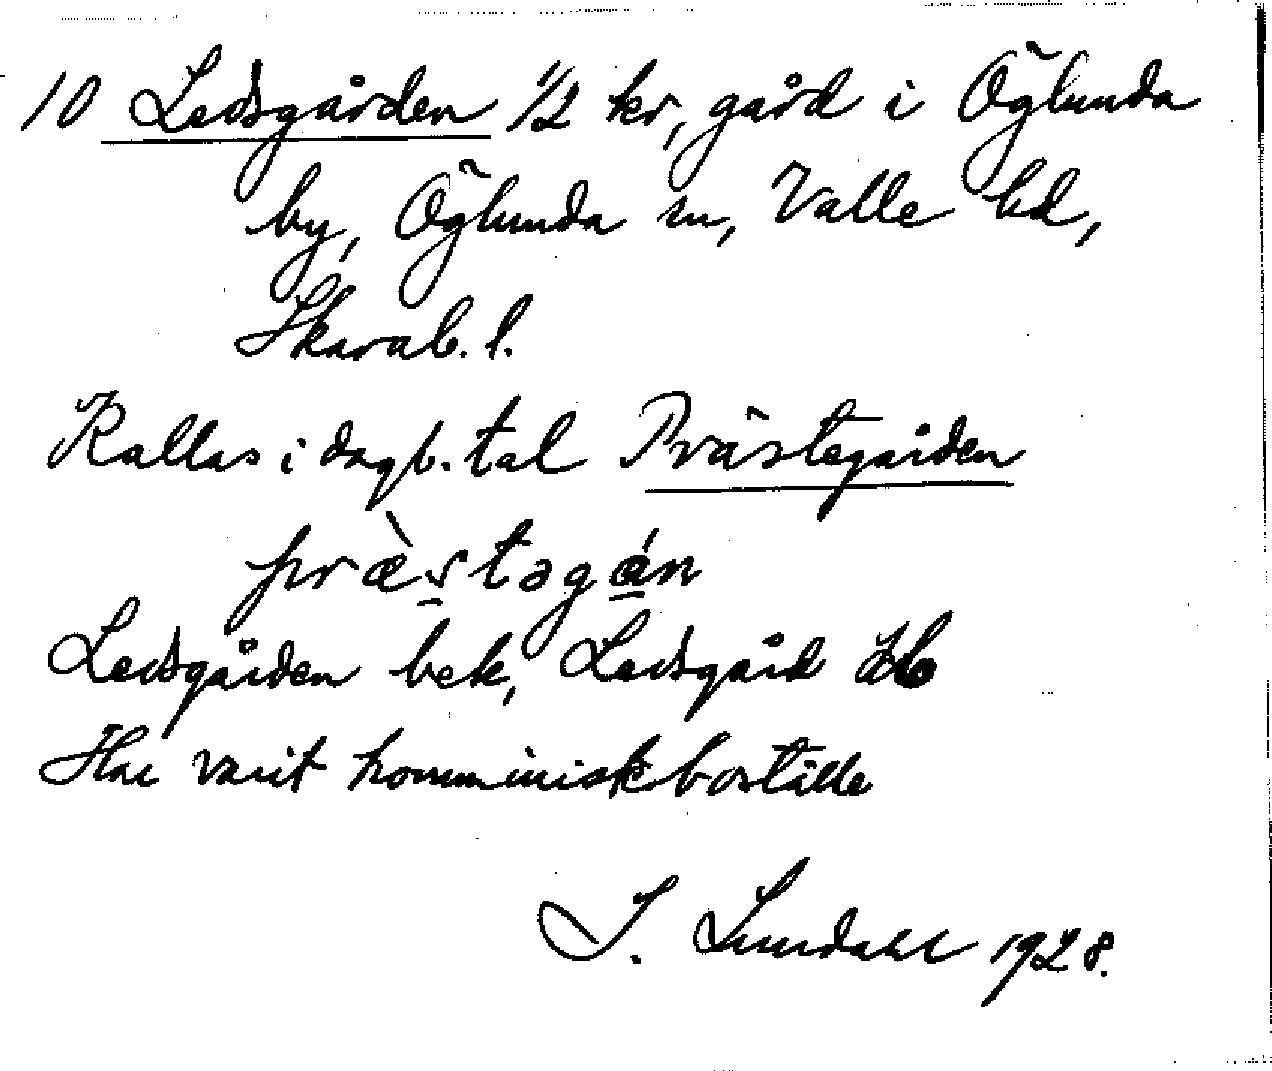 10 Ledsgården 1/2 kr, gård i Öglunda
by, Öglunda sn, Valle hd,
Skarab. l.
Kallas i dagl. tal Prästegården
præ̀stəgán
Ledsgården bek, Ledsgård
Har varit komministerboställe
I. Lundahl 1928.